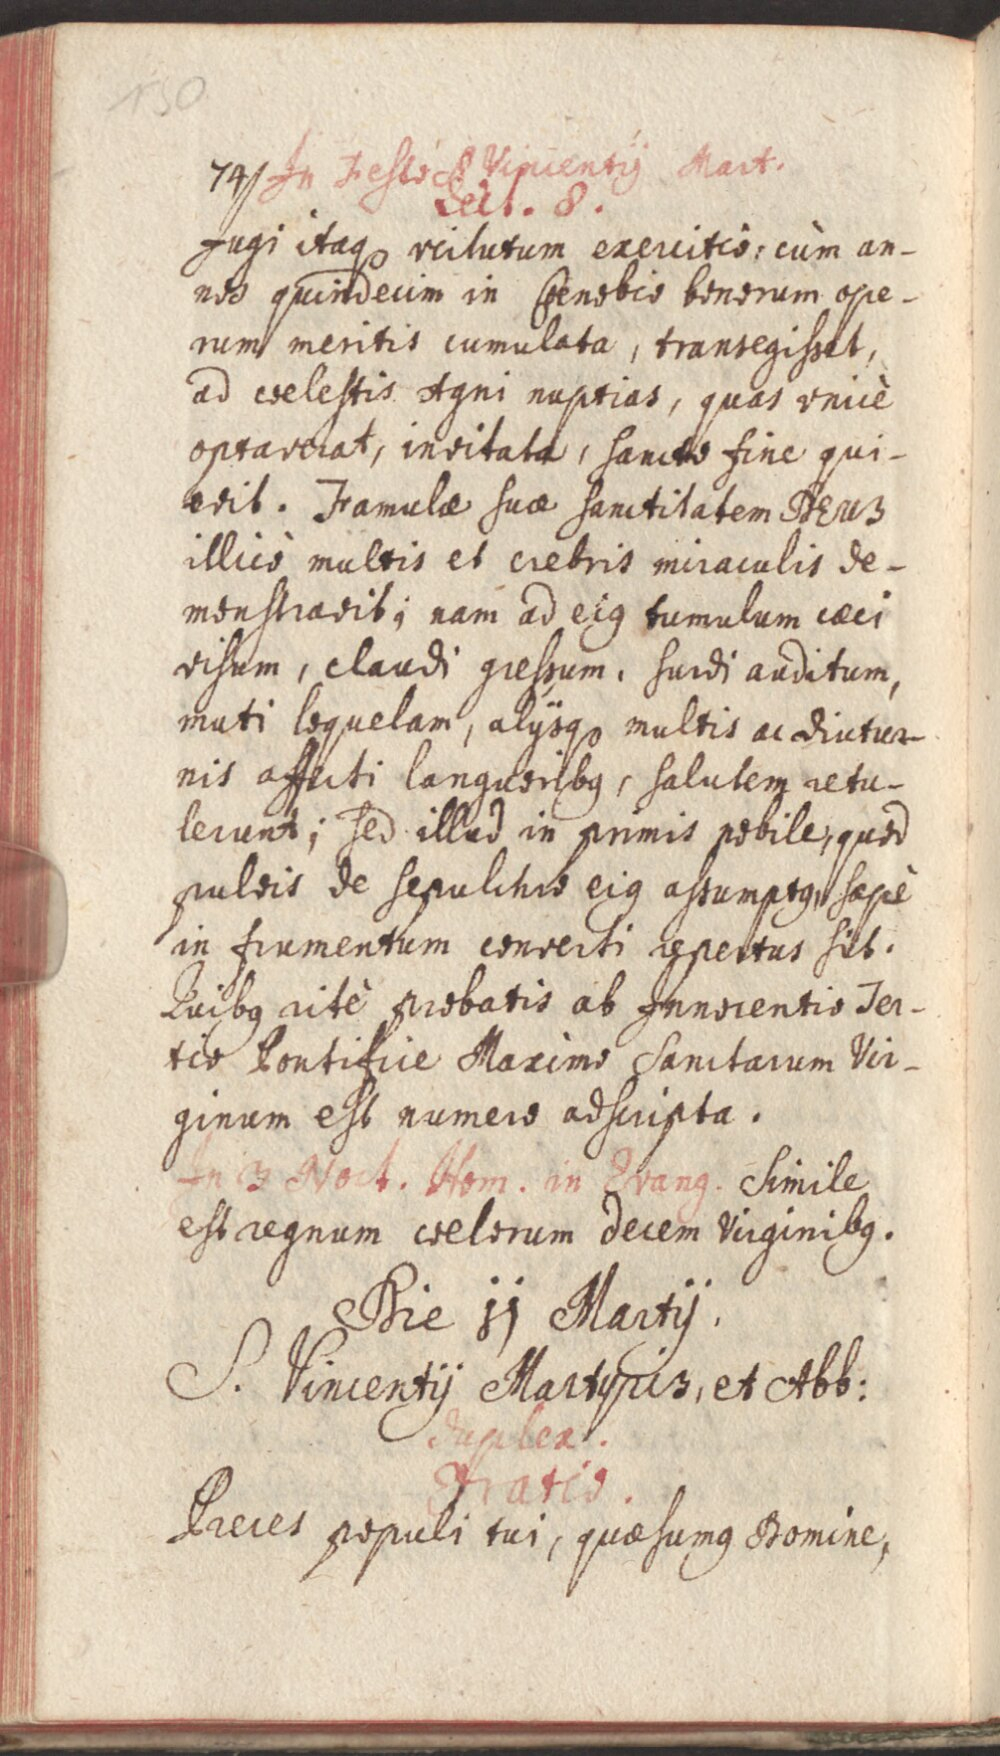 150
74/ In Festo S. Vincentij Mart.
Lect. 8.
Jugi itaq3 virtutum exercitio: cùm an-
nos quindecim in Coenobio bonorum ope-
rum meritis cumulata, transegisset,
ad coelestis Agni nuptias, quas vnicè
optaverat, invitata, sancto fine qui-
evit. Famulæ suæ sanctitatem DEUS
illicò multis et crebris miraculis de-
monstravit; nam ad eig tumulum cæci
visum, claudi gressum. surdi auditum,
muti loquelam, alijsq3 multis ac diutur-
nis affecti languoribg, salutem retu-
lerunt; sed illud in primis nobile, quod
pulvis de sepulchro eig assumptg, sæpè
in frumentum converti repertus sit.
Quibg ritè probatis ab Innocentio Ter-
tio Pontifice Maximo Sanctarum Vir-
ginum est numero adscripta.
In 3 Noct. Hom. in Evang. Simile
est regnum coelorum decem Virginibg.
Die 11 Martij.
S. Vincentij Martyris, et Abb:
duplex.
Oratio.
Preces populi tui, quæsumg Domine,